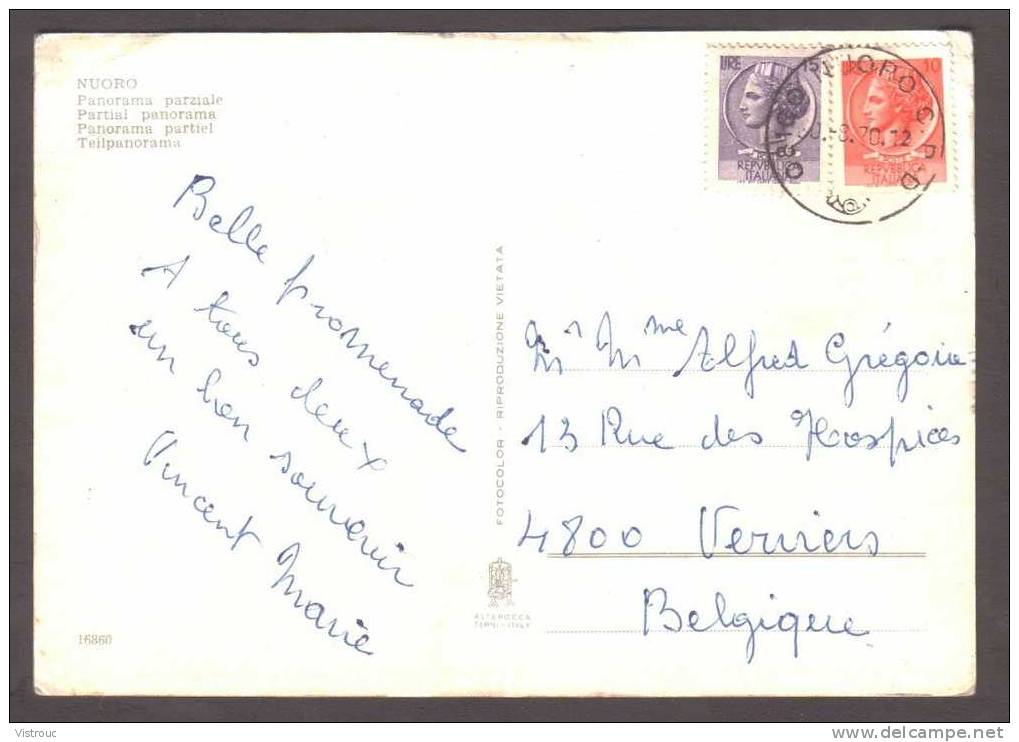 NUORO
Panorama parziale
Partial panorama
Panorama partiel
Teilpanorama
LIRE 15
REPVBBLICA
ITALIANA
LIRE 10
REPVBBLICA
ITALIANA
NUORO C.P.
.8.70.12
Belle promenade
A tous deux
un bon souvenir
Vincent Marie
FOTOCOLOR - RIPRODUZIONE VIETATA
Mr Mme Alfred Grégoire
13 Rue des Hospices
4800 Verviers
Belgique
ALTEROCCA
TERNI - ITALY
16860
Vistrouc
www.delcampe.net